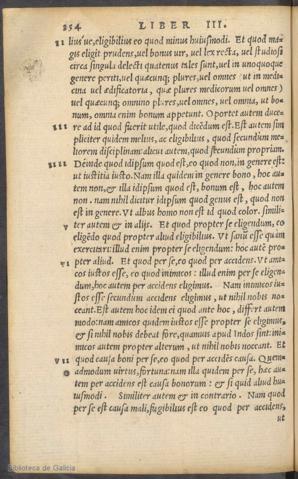 254 LIBER III.
II lius'ue, eligibilius eo quod minus huiusmodi. Et quod ma-
gis eligit prudens, uel bonus uir, uel lex recta, uel studiosi
circa singula delecti quatenus tales sunt, uel in unoquoque
genere periti, uel quæcunq; plures, uel omnes ut in medi-
cina uel ædificatoria, quæ plures medicorum uel omnes)
uel quæcunq; omnino plures, uel omnes, uel omnia, ut bo-
num, omnia enim bonum appetunt. Oportet autem duce-
III re ad id quod fuerit utile, quod dicẽdum est. Est autem sim
pliciter quidem melius, ac eligibilius, quod secundum me-
liorem disciplinam: alicui autem, quod secundum propriam.
IIII Deinde quod idipsum quod est, eo quod non, in genere est:
ut iustitia iusto. Nam illa quidem in genere bono, hoc au-
tem non, & illa idipsum quod est, bonum est, hoc autem
non. nam nihil dicitur idipsum quod genus est, quod non
est in genere. Vt albus homo non est id quod color. simili-
V ter autem & in alijs. Et quod propter se eligendum, eo
eligẽdo quod propter aliud eligibilius. Vt sanũ esse quàm
exerceri: illud enim propter se eligendum: hoc autẽ pro-
VI pter aliud. Et quod per se, eo quod per accidens. Vt ami-
cos iustos esse, eo quod inimicos: illud enim per se eligen-
dum, hoc autem per accidens eligimus. Nam inimicos iu-
stos esse secundum accidens eligimus, ut nihil nobis no-
ceant. Est autem hoc idem ei quod ante hoc, differt autem
modo: nam amicos quidem iustos esse propter se eligimus,
& si nihil nobis debeat fore, quamuis apud Indos sint: ini-
micos autem propter alterum, ut nihil nobis noceant. Et
VII quod causa boni per se, eo quod per accidẽs causa. Quem-
admodum uirtus, fortuna: nam illa quidem per se, hæc au-
tem per accidens est causa bonorum: & si quid aliud hu-
iusmodi. Similiter autem & in contrario. Nam quod
per se est causa mali, fugibilius est eo quod per accidens,
ut
Biblioteca de Galicia